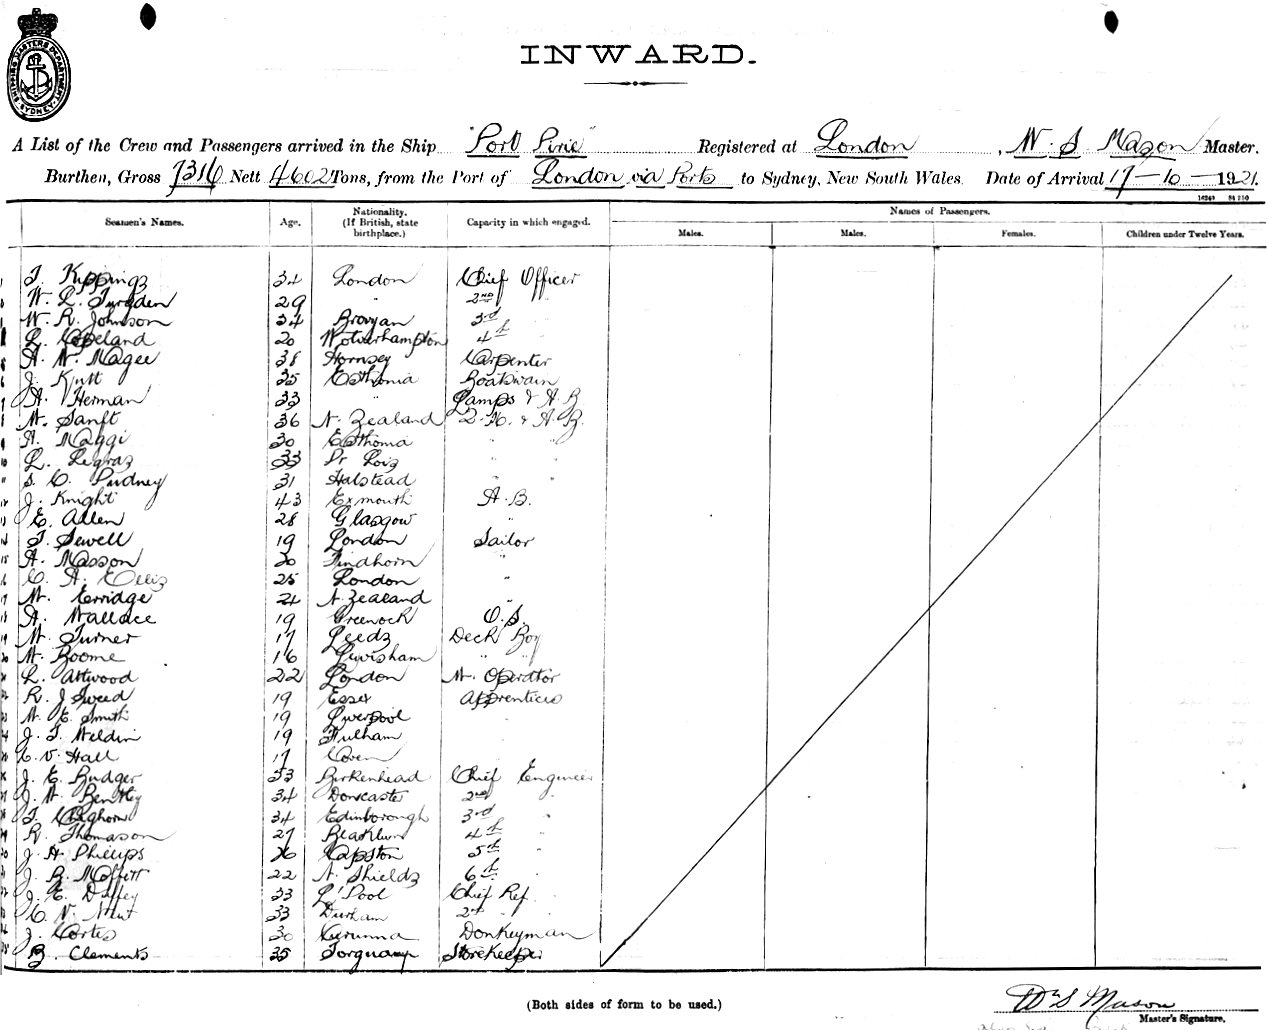 SHIPPING MASTERS DEPARTMENT SYDNEY
INWARD.
A List of the Crew and Passengers arrived in the Ship "Port Pirie" Registered at London, W. S Mason Master.
Burthen, Gross 7316 Nett 4602 Tons, from the Port of London via Ports to Sydney, New South Wales. Date of Arrival 17-10-1921.
Seamen's Names. Age. Nationality. (If British, state birthplace.) Capacity in which engaged. Names of Passengers.
Males. Males. Females. Children under Twelve Years.
T. Kippings 34 London Chief Officer
W. L. 29 " 2nd "
W. R. Johnson 34 3rd "
L. Copeland 20 Wolverhampton 4th "
A. W. Magee 38 Hornsey Carpenter
J. 35 Esthonia Boatswain
A. Herman 33 " Lamps & A.B
W. Sanft 36 N. Zealand Q.M. & A.B.
A. Maggi 30 Esthonia " "
L. Legraz 33 " "
S. C. Pudney 31 Halstead " "
J. Knight 43 Exmouth A.B.
E. Allen 28 Glasgow "
T. Sewell 19 London Sailor
A. Masson 20 Findhorn "
C. A. Ellis 25 London "
W. Erridge 21 N. Zealand "
A. Wallace 19 Greenock O.S.
W. Turner 17 Leeds Deck Boy
W. Boome 16 Lewisham " "
L. Attwood 22 London W. Operator
R. J Sweed 19 Essex Apprentices
W. E. Smith 19 Liverpool "
J. T. Weldin 19 Fulham "
C. V. Hall 17 "
J. E. Budger 53 Birkenhead Chief Engineer
J. W. Bentley 34 Doncaster 2nd "
T. Cleghorn 34 Edinborough 3rd "
R. Thomason 27 Blackburn 4th "
J. H Phillips 26 5th "
J. B. Moffett 22 N. Shields 6th "
J. E. Duffey 33 L'Pool Chief Ref.
C. V. 33 Durham 2nd "
J. Cortes 30 Corunna Donkeyman
B. Clements 35 Torquay Storekeeper
(Both sides of form to be used.)
Wm S Mason
Master's Signature.